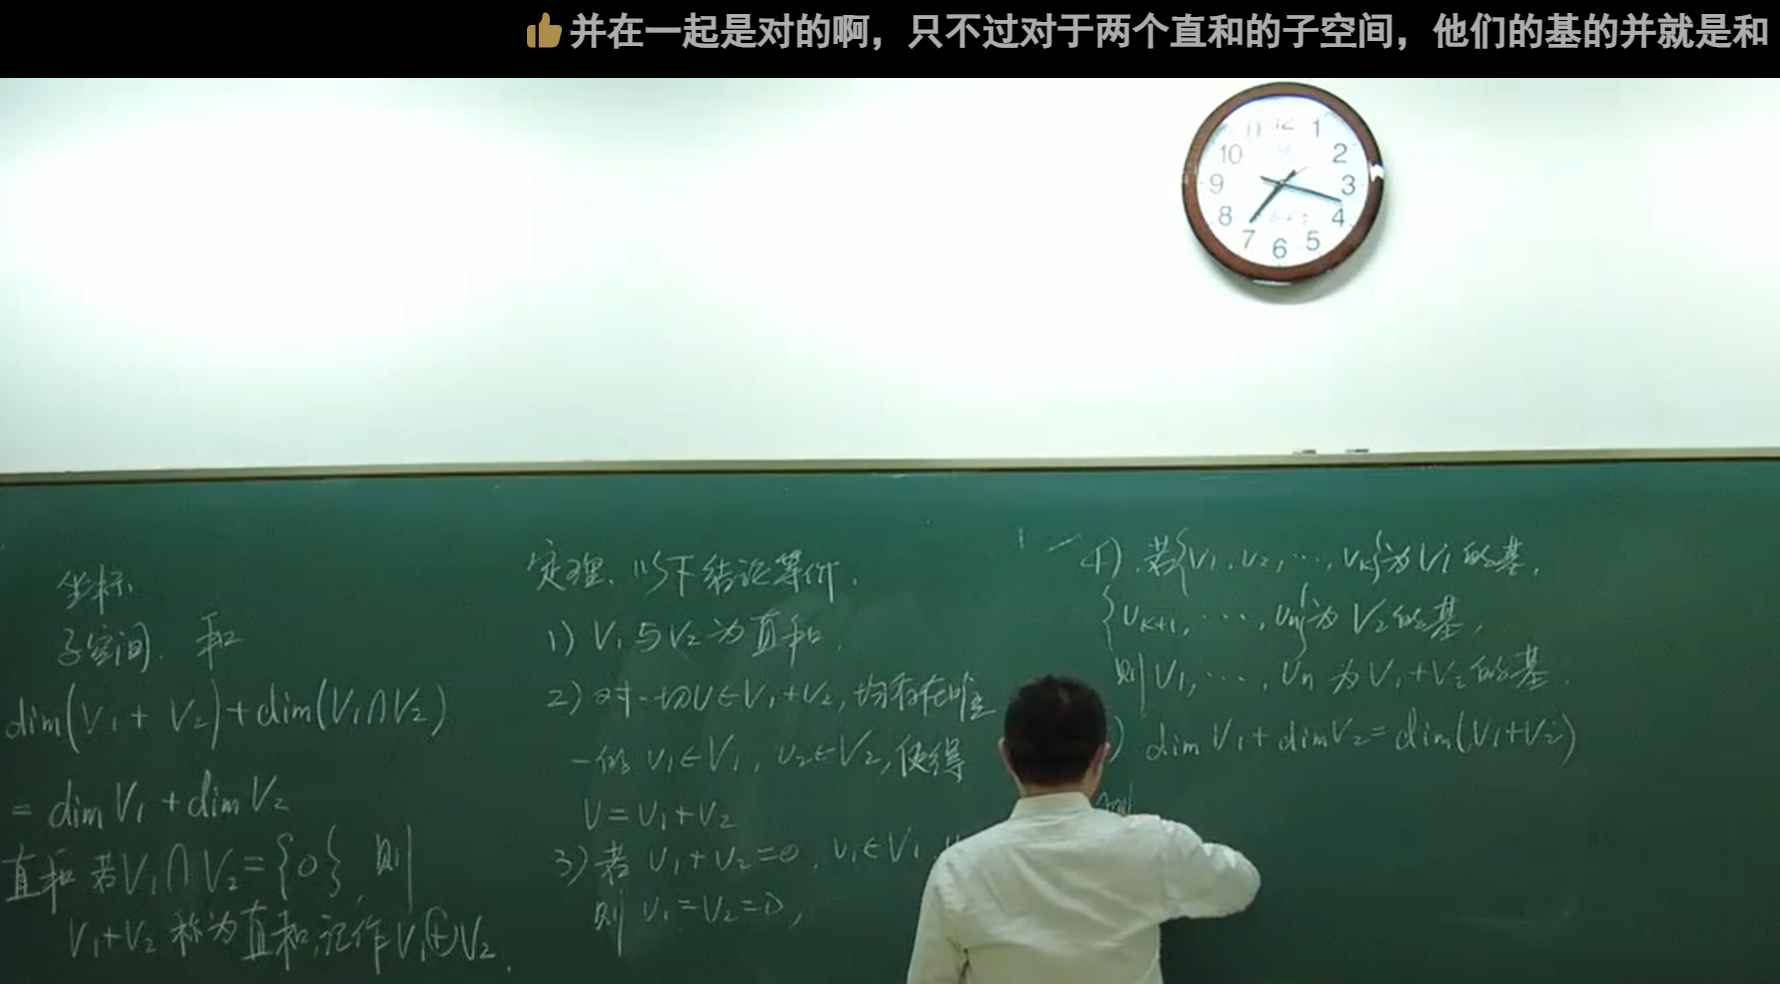 并在一起是对的啊，只不过对于两个直和的子空间，他们的基的并就是和
11 12 1
10 2
9 3
8 4
7 6 5
坐标
子空间. 和
dim(V₁+V₂)+dim(V₁∩V₂)
= dim V₁ + dim V₂
直和 若V₁∩V₂={0}, 则
V₁+V₂ 称为直和,记作V₁⊕V₂.
定理. 以下结论等价.
1) V₁与V₂为直和.
2) 对一切v∈V₁+V₂, 均存在唯
一的 v₁∈V₁, v₂∈V₂, 使得
v=v₁+v₂
3) 若 v₁+v₂=0, v₁∈V₁,
则 v₁=v₂=0,
4). 若{v₁,v₂,…,vₖ}为V₁的基,
{vₖ₊₁,…,vₙ}为V₂的基,
则v₁,…,vₙ为V₁+V₂的基.
) dim V₁+dim V₂=dim(V₁+V₂)